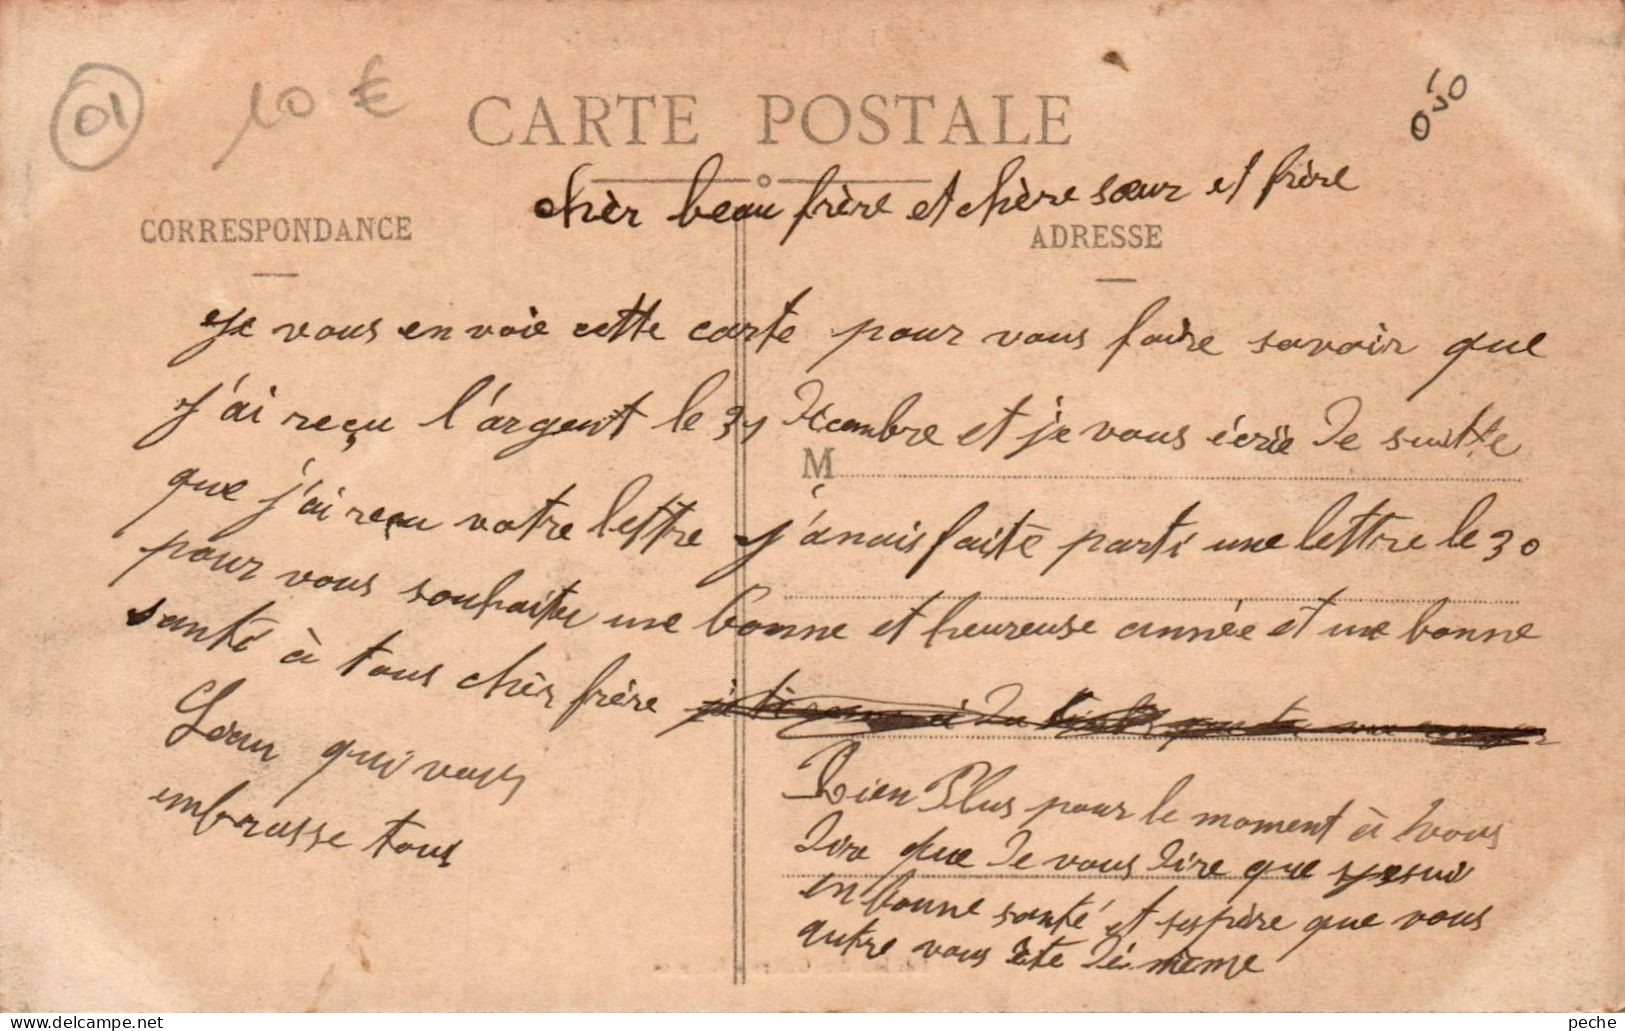 01
10 €
CARTE POSTALE
chèr beau frère et chère sœur et frère
CORRESPONDANCE
ADRESSE
Je vous envoie cette carte pour vous faire savoir que
j'ai reçu l'argent le 31 Xcembre et je vous écrie de suitte
M
que j'ai reçu votre lettre j'avais faite parti une lettre le 30
pour vous souhaiter une bonne et heureuse année et une bonne
santé à tous chèr frère
qui vous
embrasse tous
Rien Plus pour le moment à vous
dire que de vous dire que je sui
en bonne santé et jespère que vous
autre vous ete dé mème
peche